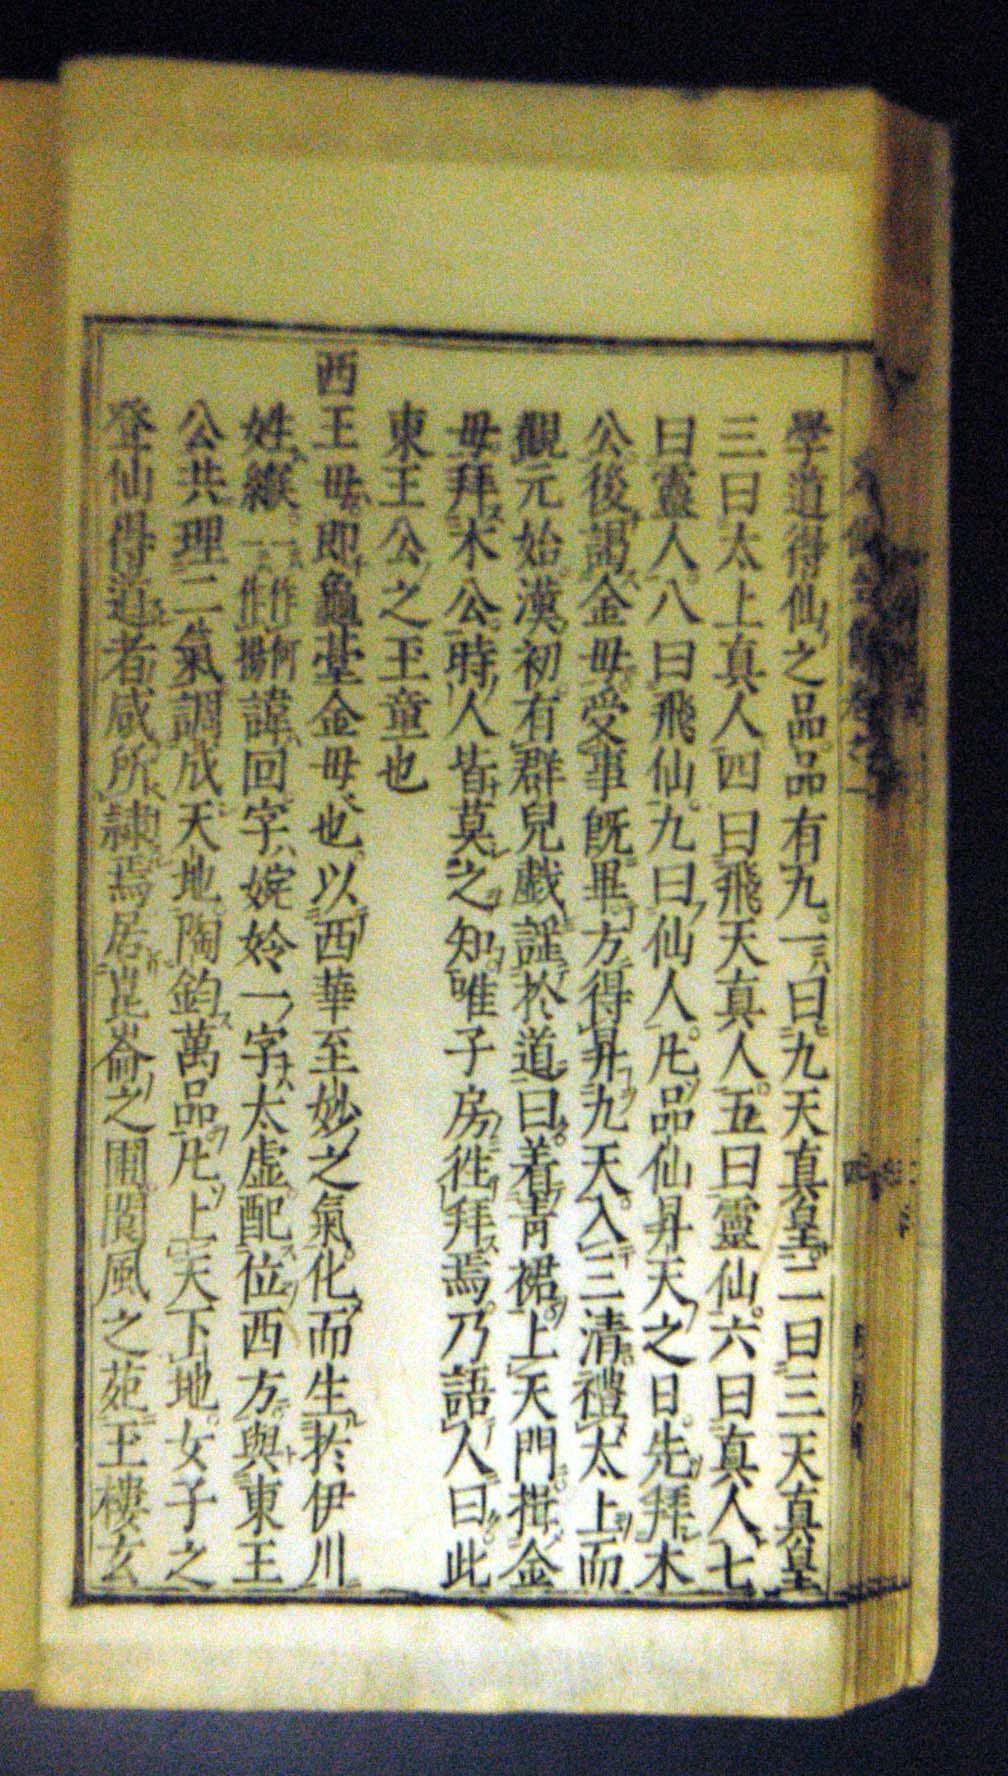 學道得仙之品品有九一曰九天真皇二曰三天真皇
三曰太上真人四曰飛天真人五曰靈仙六曰真人七
曰靈人八曰飛仙九曰仙人凡品仙昇天之日先拜木
公後謁金母受事既畢方得昇九天入三清禮太上而
觀元始漢初有群兒戲謡於道曰着青裙上天門揖金
母拜木公時人皆莫之知唯子房徃拜焉乃語人曰此
東王公之玉童也
西王母即龜䑓金母也以西華至妙之氣化而生於伊川
姓緱一作何一作楊諱回字婉妗一字太虛配位西方與東王
公共理二氣調成天地陶鈞萬品凡上天下地女子之
登仙得道者咸所隷焉居崑崙之圃閬風之苑玉樓玄